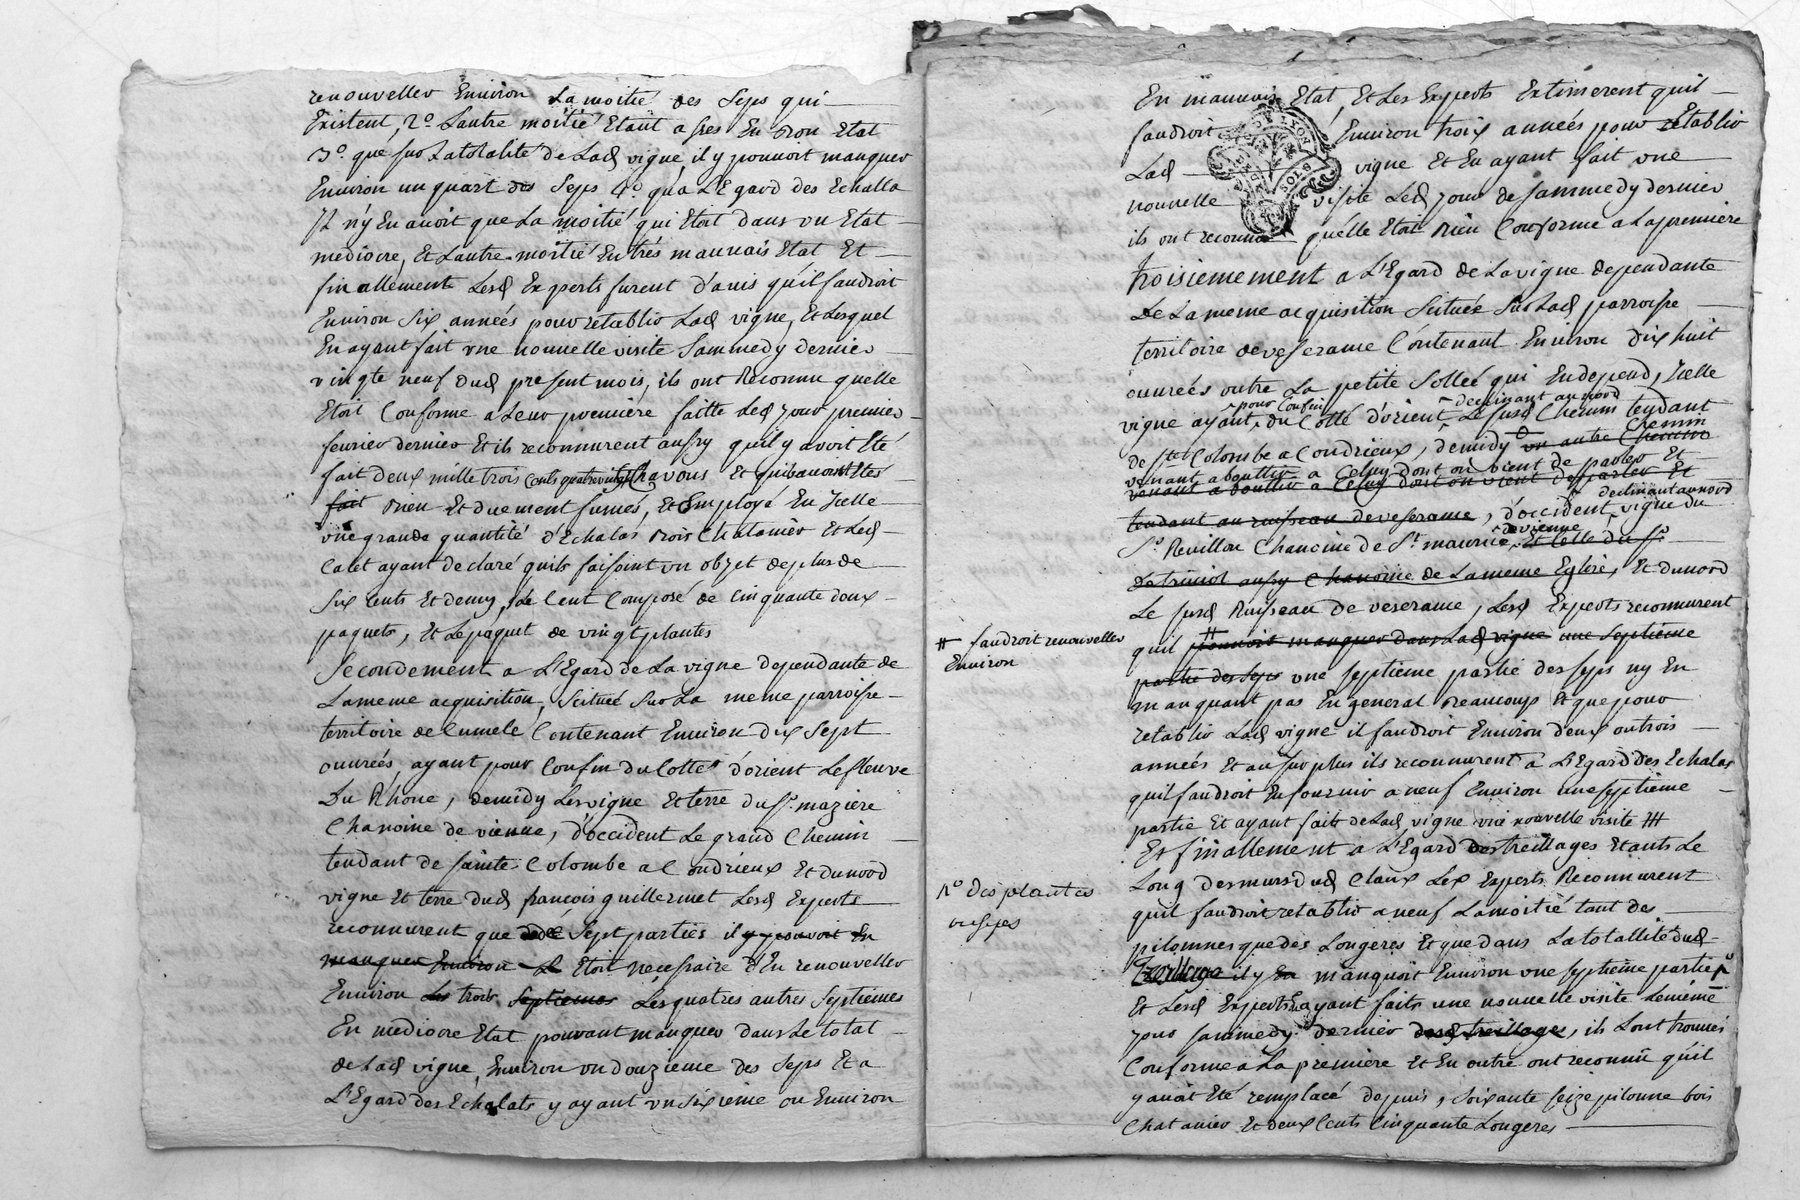 renouveller Environ La moitié des Seps qui
Existent, 2o. Lautre moitié Etant asses En bon Etat
3o. que sur La totalité de Lad vigne il y pouvoit manquer
Environ un quart des Seps 4o. qu'a L'Egard des Echalla
Il n'y En avoit que La moitié qui Etoit dans un Etat
mediocre, Et Lautre moitié En trés mauvais Etat Et
finallement Lesd Experts furent d'avis qu'il faudroit
Environ Six années pour retablir Lad vigne, Et Lesquel
En ayant fait une nouvelle visite Sammedy dernier
vingte neuf dud present mois, ils ont Reconnu quelle
Etoit Conforme a Leur premiére faitte Led jour premier
fevrier dernier Et ils reconnurent aussy qu'il y avoit Eté
fait deux mille trois Cents quatre vingt Chavons Et qui avoient Etes
fait bien Et duement fumés, Et Employé En Icelle
une grande quantité d'Echalas bois Chatanier Et Led
Calet ayant declaré quils faisoint un objet de plus de
Six cents Et demy, Le Cent Composé de Cinquante deux
paquets, Et Le paquet de vingt plantes
Secondement a L'Egard de La vigne dependante de
La meme acquisition, Scituée Sur La meme parroisse
territoire de Cumele Contenant Environ dix Sept
ouvreés, ayant pour Confin du Cotté d'orient Le fleuve
Du Rhone, de midy Les vigne Et terre du Sr. maziere
Chanoine de vienne, d'occident Le grand Chemin
tendant de Sainte Colombe a Condrieux Et du nord
vigne Et terre dud françois guillermet Lesd Experts
reconnurent que de Sept parties il y pouvoit En
manquer Environ Etoit necessaire d'En renouveller
Environ Les trois Septiemes Les quatres autres Septiemes
En mediocre Etat pouvant manquer dans Le total
de Lad vigne, Environ un douzieme des Seps Et a
L'Egard des Echalats y ayant un Sixieme ou Environ
En mauvais Etat, Et Les Experts Extimerent quil
faudroit Environ trois années pour retablir
Lad vigne Et En ayant fait une
nouvelle visite Led jour de Sammedy dernier
ils ont reconnu quélle Etoit bien Conforme a La premiere
troisiemement a L'Egard de La vigne dependante
De La meme acquisition Scituée Sur Lad parroisse
territoire de veserame Contenant Environ dix huit
ouvreés outre La petite Solleé qui En depend, Icelle
pour Confin declinant au nord
vigne ayant du Cotté d'orient Le Susd Chemin tendant
Chemin
de Ste Colombe a Condrieux, de midy un autre Chemin
venant aboutir a Celuy dont on vient de parler Et
venant aboutir a Celuy dont on vient de parler Et
declinant au nord
tendant au ruisseau de veserame, d'occident vigne du
de vienne
Sr. Revillon Chanoine de St. maurice, Et Celle du Sr.
aussy Chanoine de La meme Eglise, Et du nord
Le Susd Ruisseau de veserame, Lesd Experts reconnurent
# faudroit renouveller
Environ
quil # pouvoit manquer dans Lad vigne une Septieme
partie des Seps une Septieme partie des Seps ny En
manquant pas En general Beaucoup Et que pour
retablir Lad vigne il faudroit Environ deux ou trois
années Et au Surplus ils reconnurent a L'Egard des Echalas
quil faudroit En fournir a neuf Environ une Septieme
partie Et ayant fait de Lad vigne une nouvelle visite
Et finallement a L'Egard des treillages Etants Le
Long des murs dud Claux Les Experts Reconnurent
quil faudroit retablir a neuf La moitié tant des
pilonnes que des Longeres Et que dans La totallité dud
treillage il y En manquoit Environ une Septieme partie
no des plantes
Et Lesd Experts En ayant faits une nouvelle visite Le méme
jour Sammedy dernier desd treillages, ils Lont trouvés
Conforme a La premiére Et En outre ont reconnû qu'il
y avoit Eté remplacé depuis, Soixante Seize pilonne bois
Chatanier Et deux Cents Cinquante Longeres